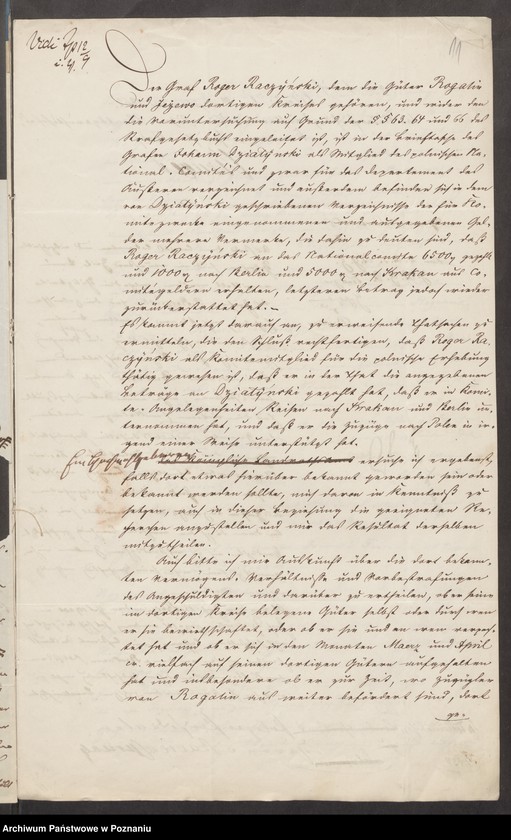 11
Der Graf Roger Raczyński, dem die Güter Rogalin
und Jezewo dortigen Kreises gehören, und wider den
die Voruntersuchung auf Grund der §§ 63. 64 und 66 des
Strafgesetzbuchs eingeleitet ist, ist in der Brieftasche des
Grafen Johann Dzialyński als Mitglied des polnischen Na-
tional-Comités und zwar für das Departement des
Äußeren verzeichnet und außerdem befinden sich in dem
von Dzialyński geschriebenen Verzeichnisse der für Co-
mitézwecke eingenommenen und ausgegebenen Gel-
der mehrere Vermerke, die dahin zu deuten sind, daß
Roger Raczyński an das Nationalcomité 6500 gezahlt
und 1000 nach Berlin und 5000 nach Krakau aus Co-
mitégeldern erhalten, letzteren Betrag jedoch wieder
zurückerstattet hat. –
Es kommt jetzt darauf an, zu erweisende Thatsachen zu
ermitteln, die den Schluß rechtfertigen, daß Roger Ra-
czyński als Comitémitglied für die polnische Erhebung
thätig gewesen ist, daß er in der That die angegebenen
Beträge an Dzialyński gezahlt hat, daß er in Comi-
té-Angelegenheiten Reisen nach Krakau und Berlin un-
ternommen hat, und daß er die Zuzüge nach Polen in ir-
gend einer Weise unterstützt hat.
Ew Hochwohlgeboren ersuche ich ergebenst,
falls dort etwas hierüber bekannt geworden sein oder
bekannt werden sollte, mich davon in Kenntniß zu
setzen, auch in dieser Beziehung die geeigneten Re-
cherchen anzustellen und mir das Resultat derselben
mitzutheilen.
Auch bitte ich mir Auskunft über die dort bekann-
ten Vermögens-Verhältnisse und Vorbestrafungen
des Angeschuldigten und darüber zu ertheilen, ob er seine
im dortigen Kreise belegene Güter selbst oder durch wen
er sie bewirthschaftet, oder ob er sie und an wen verpach-
tet hat und ob er sich in den Monaten Maerz und April
cr. vielfach auf seinen dortigen Gütern aufgehalten
hat und insbesondere ob er zur Zeit, wo Zuzügler
von Rogalin aus weiter befördert sind, dort
ge-
Archiwum Państwowe w Poznaniu